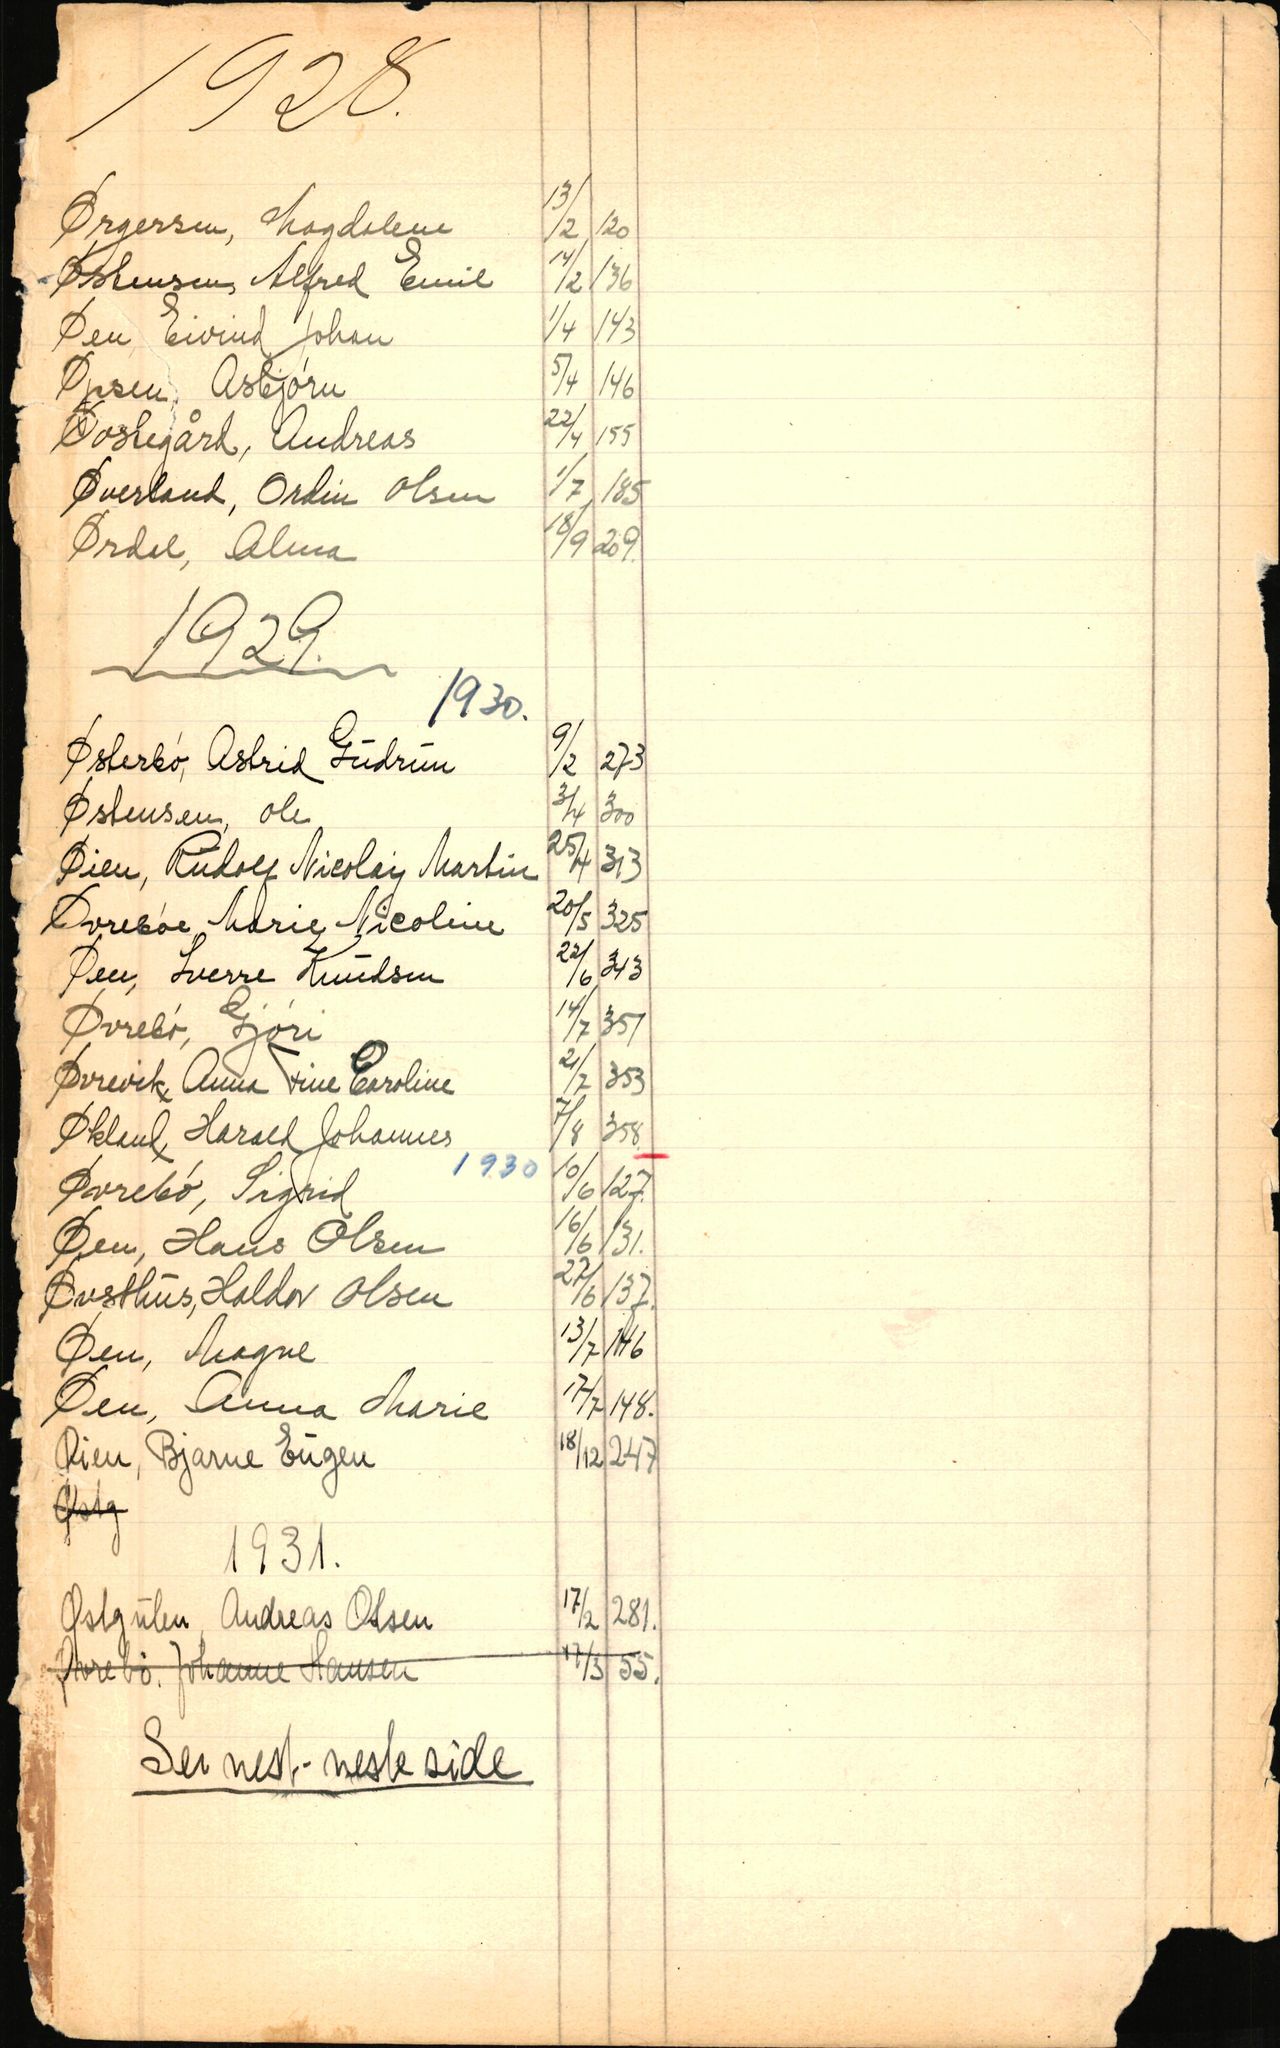 1928.
Ørgersen, Magdalene 13/2 120
Østensen, Alfred Emil 14/2 136
Øen, Eivind Johan 1/4 143
Øpsen, Asbjórn 5/4 146
Andreas 22/4 155
Øverland, Ordin Olsen 1/7 185
Ørdal, Alma 18/9 209.
1929.
1930.
Østerbó, Astrid Gudrun 9/2 273
Østensen, Ole 3/4 300
Øien, Rudolf Nicolay Martin 25/4 313
Øvrebóe Marie Nicoline 20/5 325
Øen, Sverre Knudsen 22/6 343
Øvrebó, Gjóri 14/7 351
Øvrevik, Anna Fine Caroline 21/7 353
Økland, Harald Johannes 7/8 358.
1930
Øvrebó, Sigrid 10/6 127.
Øen, Hans Olsen 16/6 131.
Øvsthus, Haldor Olsen 27/6 137.
Øen, Magne 13/7 146
Øen, Anna Marie 17/7 148.
Øien, Bjarne Eugen 18/12 247
Østg
1931.
Østgulen, Andreas Olsen 17/2 281.
Øvrebö. Johanne Hansen 17/3 55.
Sei nest-neste side